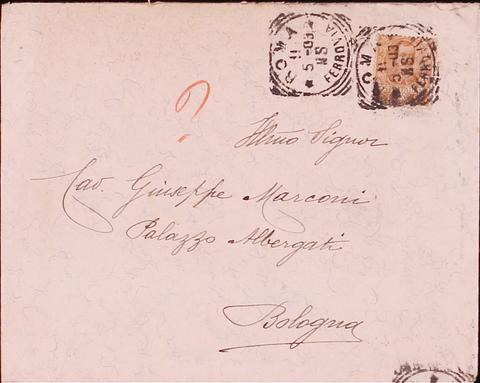 ROMA FERROVIA
11 5-03 MS
ROMA FERROVIA
11 5-03 MS
?
Illmo Signor
Cav. Giuseppe Marconi
Palazzo Albergati
Bologna